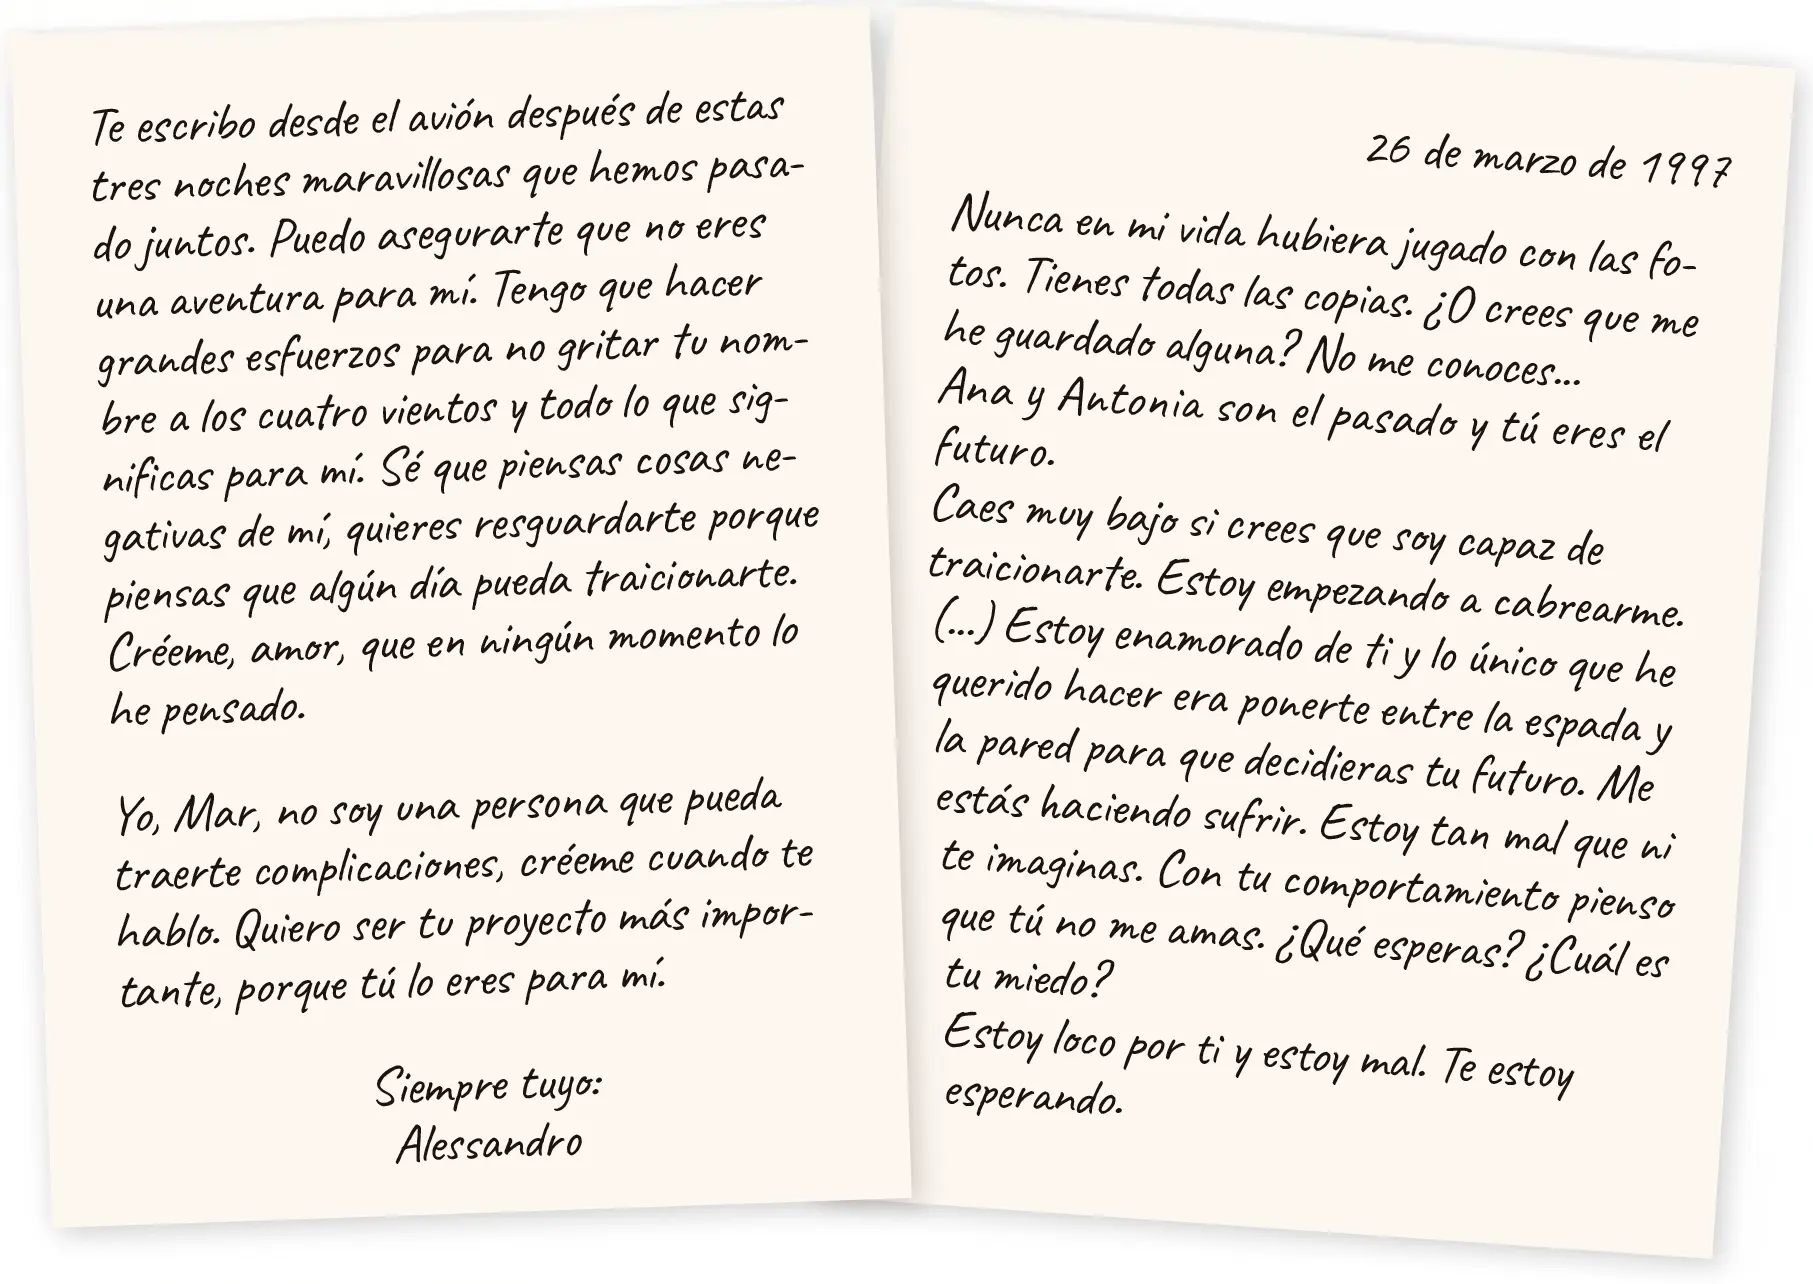 Te escribo desde el avión después de estas
tres noches maravillosas que hemos pasa-
do juntos. Puedo asegurarte que no eres
una aventura para mí. Tengo que hacer
grandes esfuerzos para no gritar tu nom-
bre a los cuatro vientos y todo lo que sig-
nificas para mí. Sé que piensas cosas ne-
gativas de mí, quieres resguardarte porque
piensas que algún día pueda traicionarte.
Créeme, amor, que en ningún momento lo
he pensado.
Yo, Mar, no soy una persona que pueda
traerte complicaciones, créeme cuando te
hablo. Quiero ser tu proyecto más impor-
tante, porque tú lo eres para mí.
Siempre tuyo:
Alessandro
26 de marzo de 1997
Nunca en mi vida hubiera jugado con las fo-
tos. Tienes todas las copias. ¿O crees que me
he guardado alguna? No me conoces...
Ana y Antonia son el pasado y tú eres el
futuro.
Caes muy bajo si crees que soy capaz de
traicionarte. Estoy empezando a cabrearme.
(...) Estoy enamorado de ti y lo único que he
querido hacer era ponerte entre la espada y
la pared para que decidieras tu futuro. Me
estás haciendo sufrir. Estoy tan mal que ni
te imaginas. Con tu comportamiento pienso
que tú no me amas. ¿Qué esperas? ¿Cuál es
tu miedo?
Estoy loco por ti y estoy mal. Te estoy
esperando.